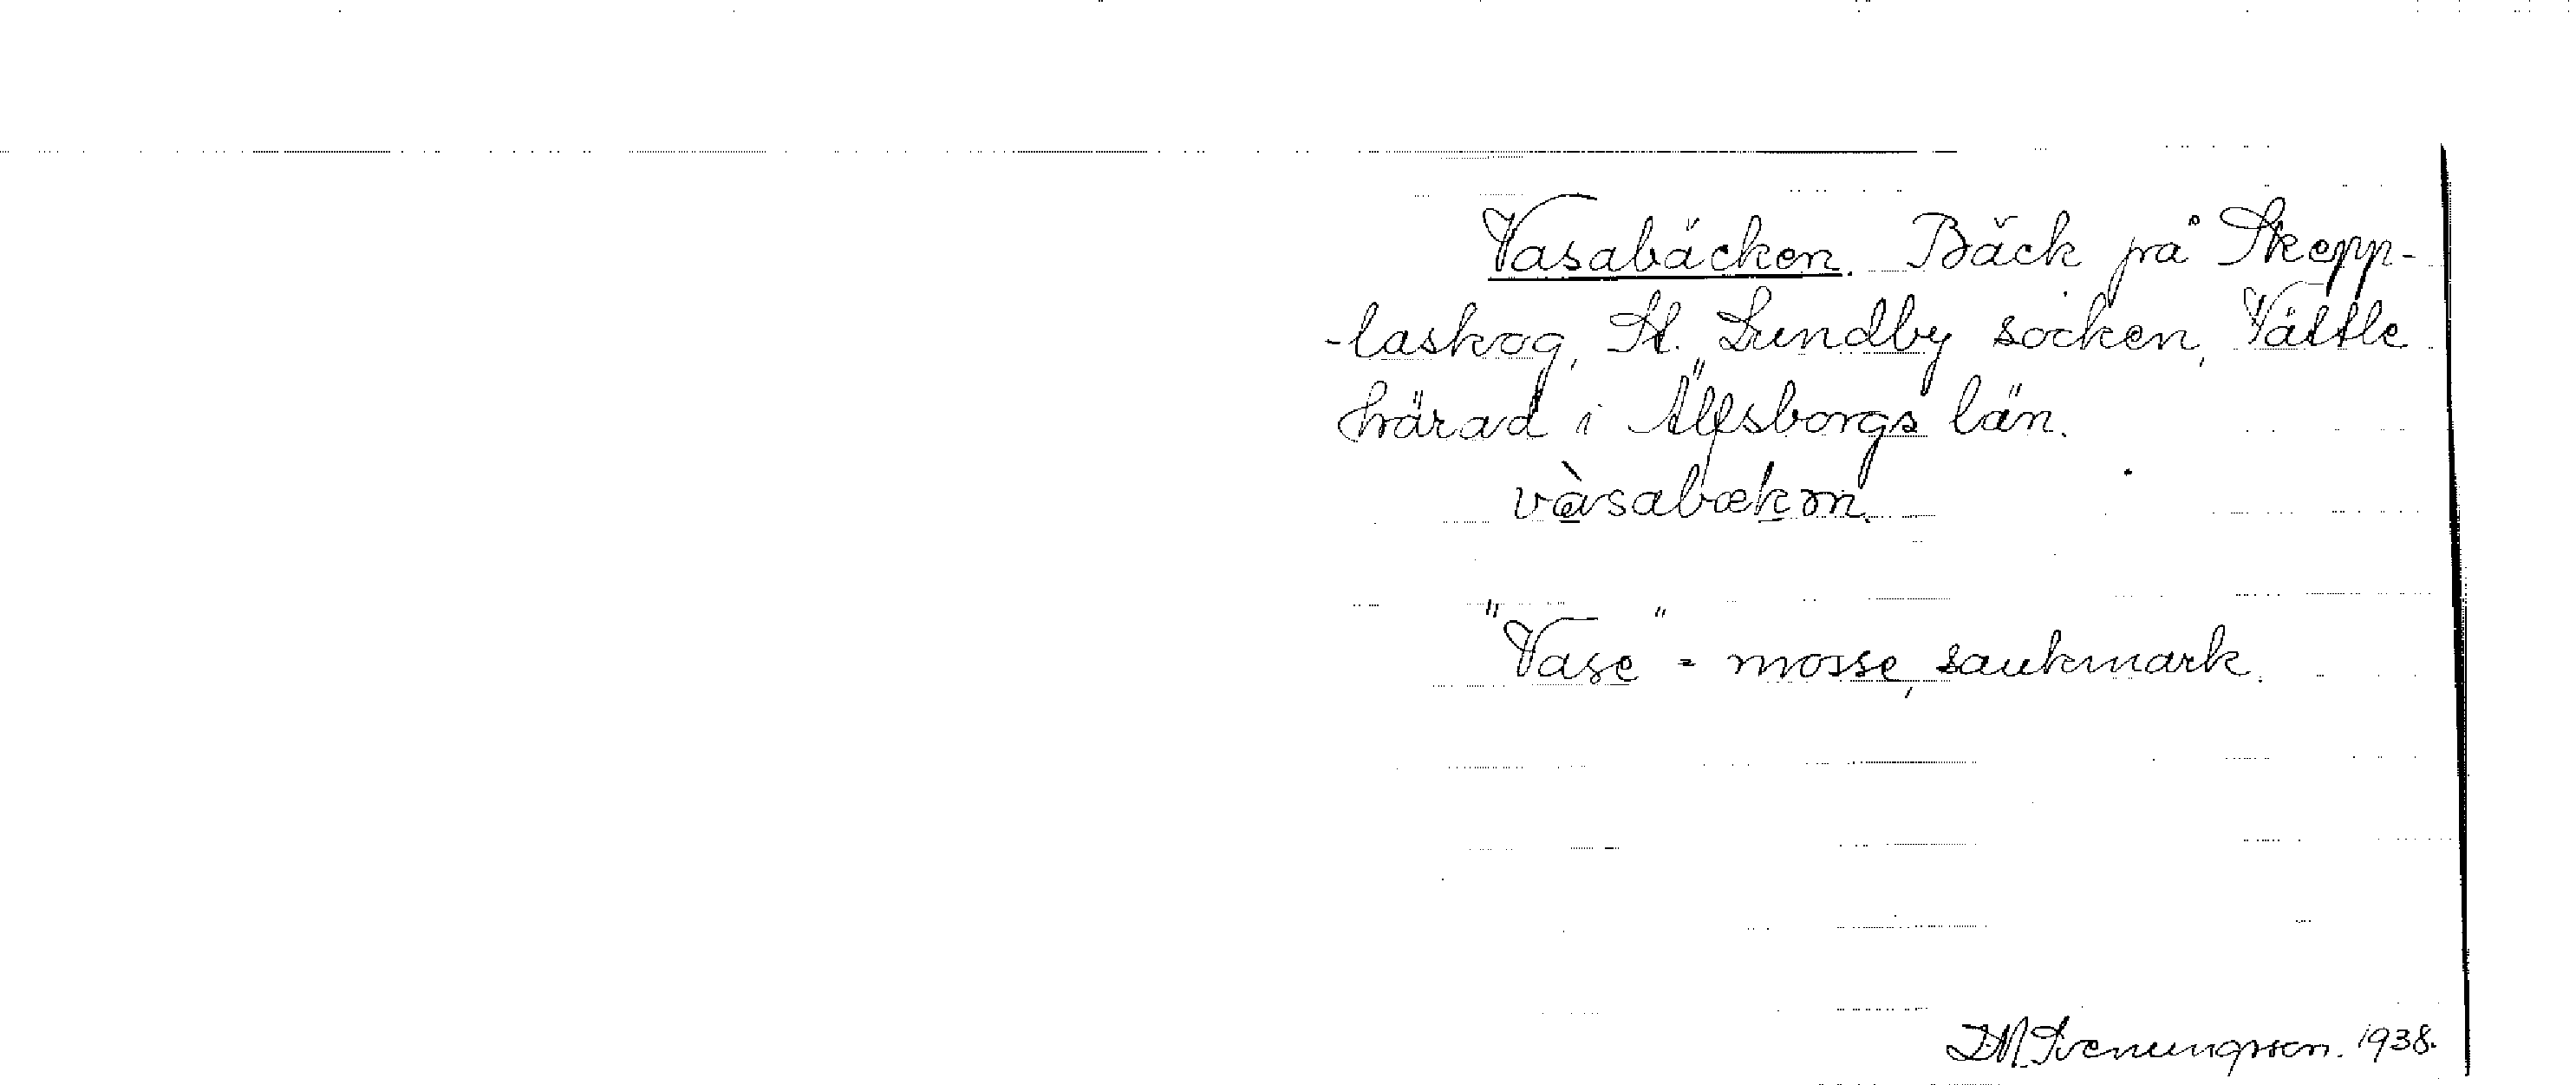 Vasabäcken. Bäck på Skepp-
-laskog, St. Lundby socken, Vättle
härad i Älfsborgs län.
vàsabækən.
"Vase" = mosse, sankmark.
J.M. Svenungsson. 1938.